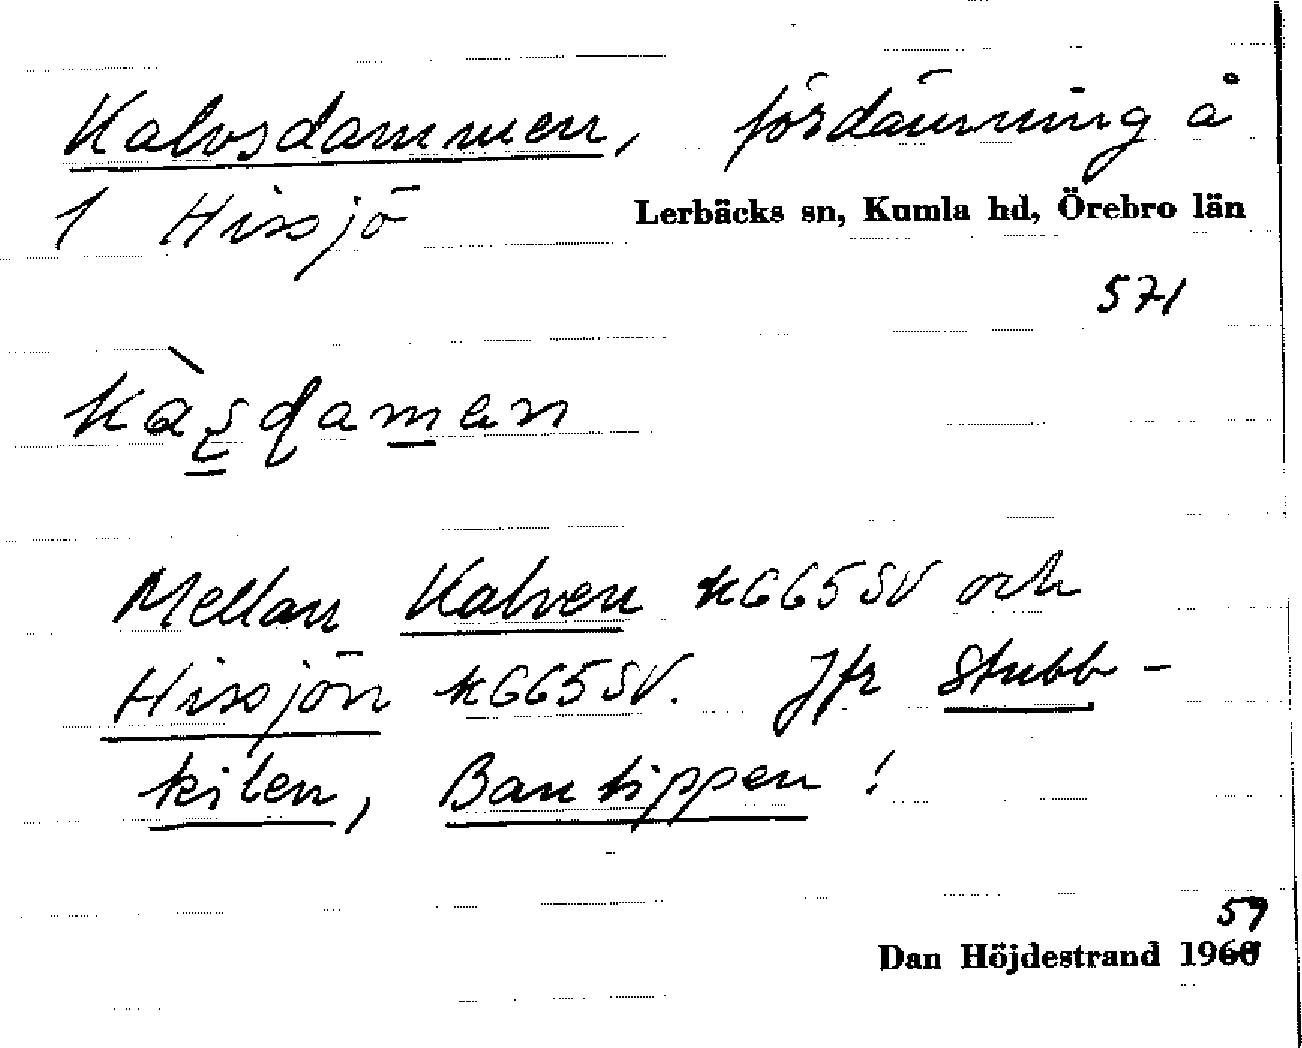 Kalvsdammen, fördämning å
1 Hissjö
Lerbäcks sn, Kumla hd, Örebro län
571
Mellan Kalven k665SV och
Hissjön k665SV. Jfr Stubb-
kilen, Bantippen!
59
Dan Höjdestrand 1960